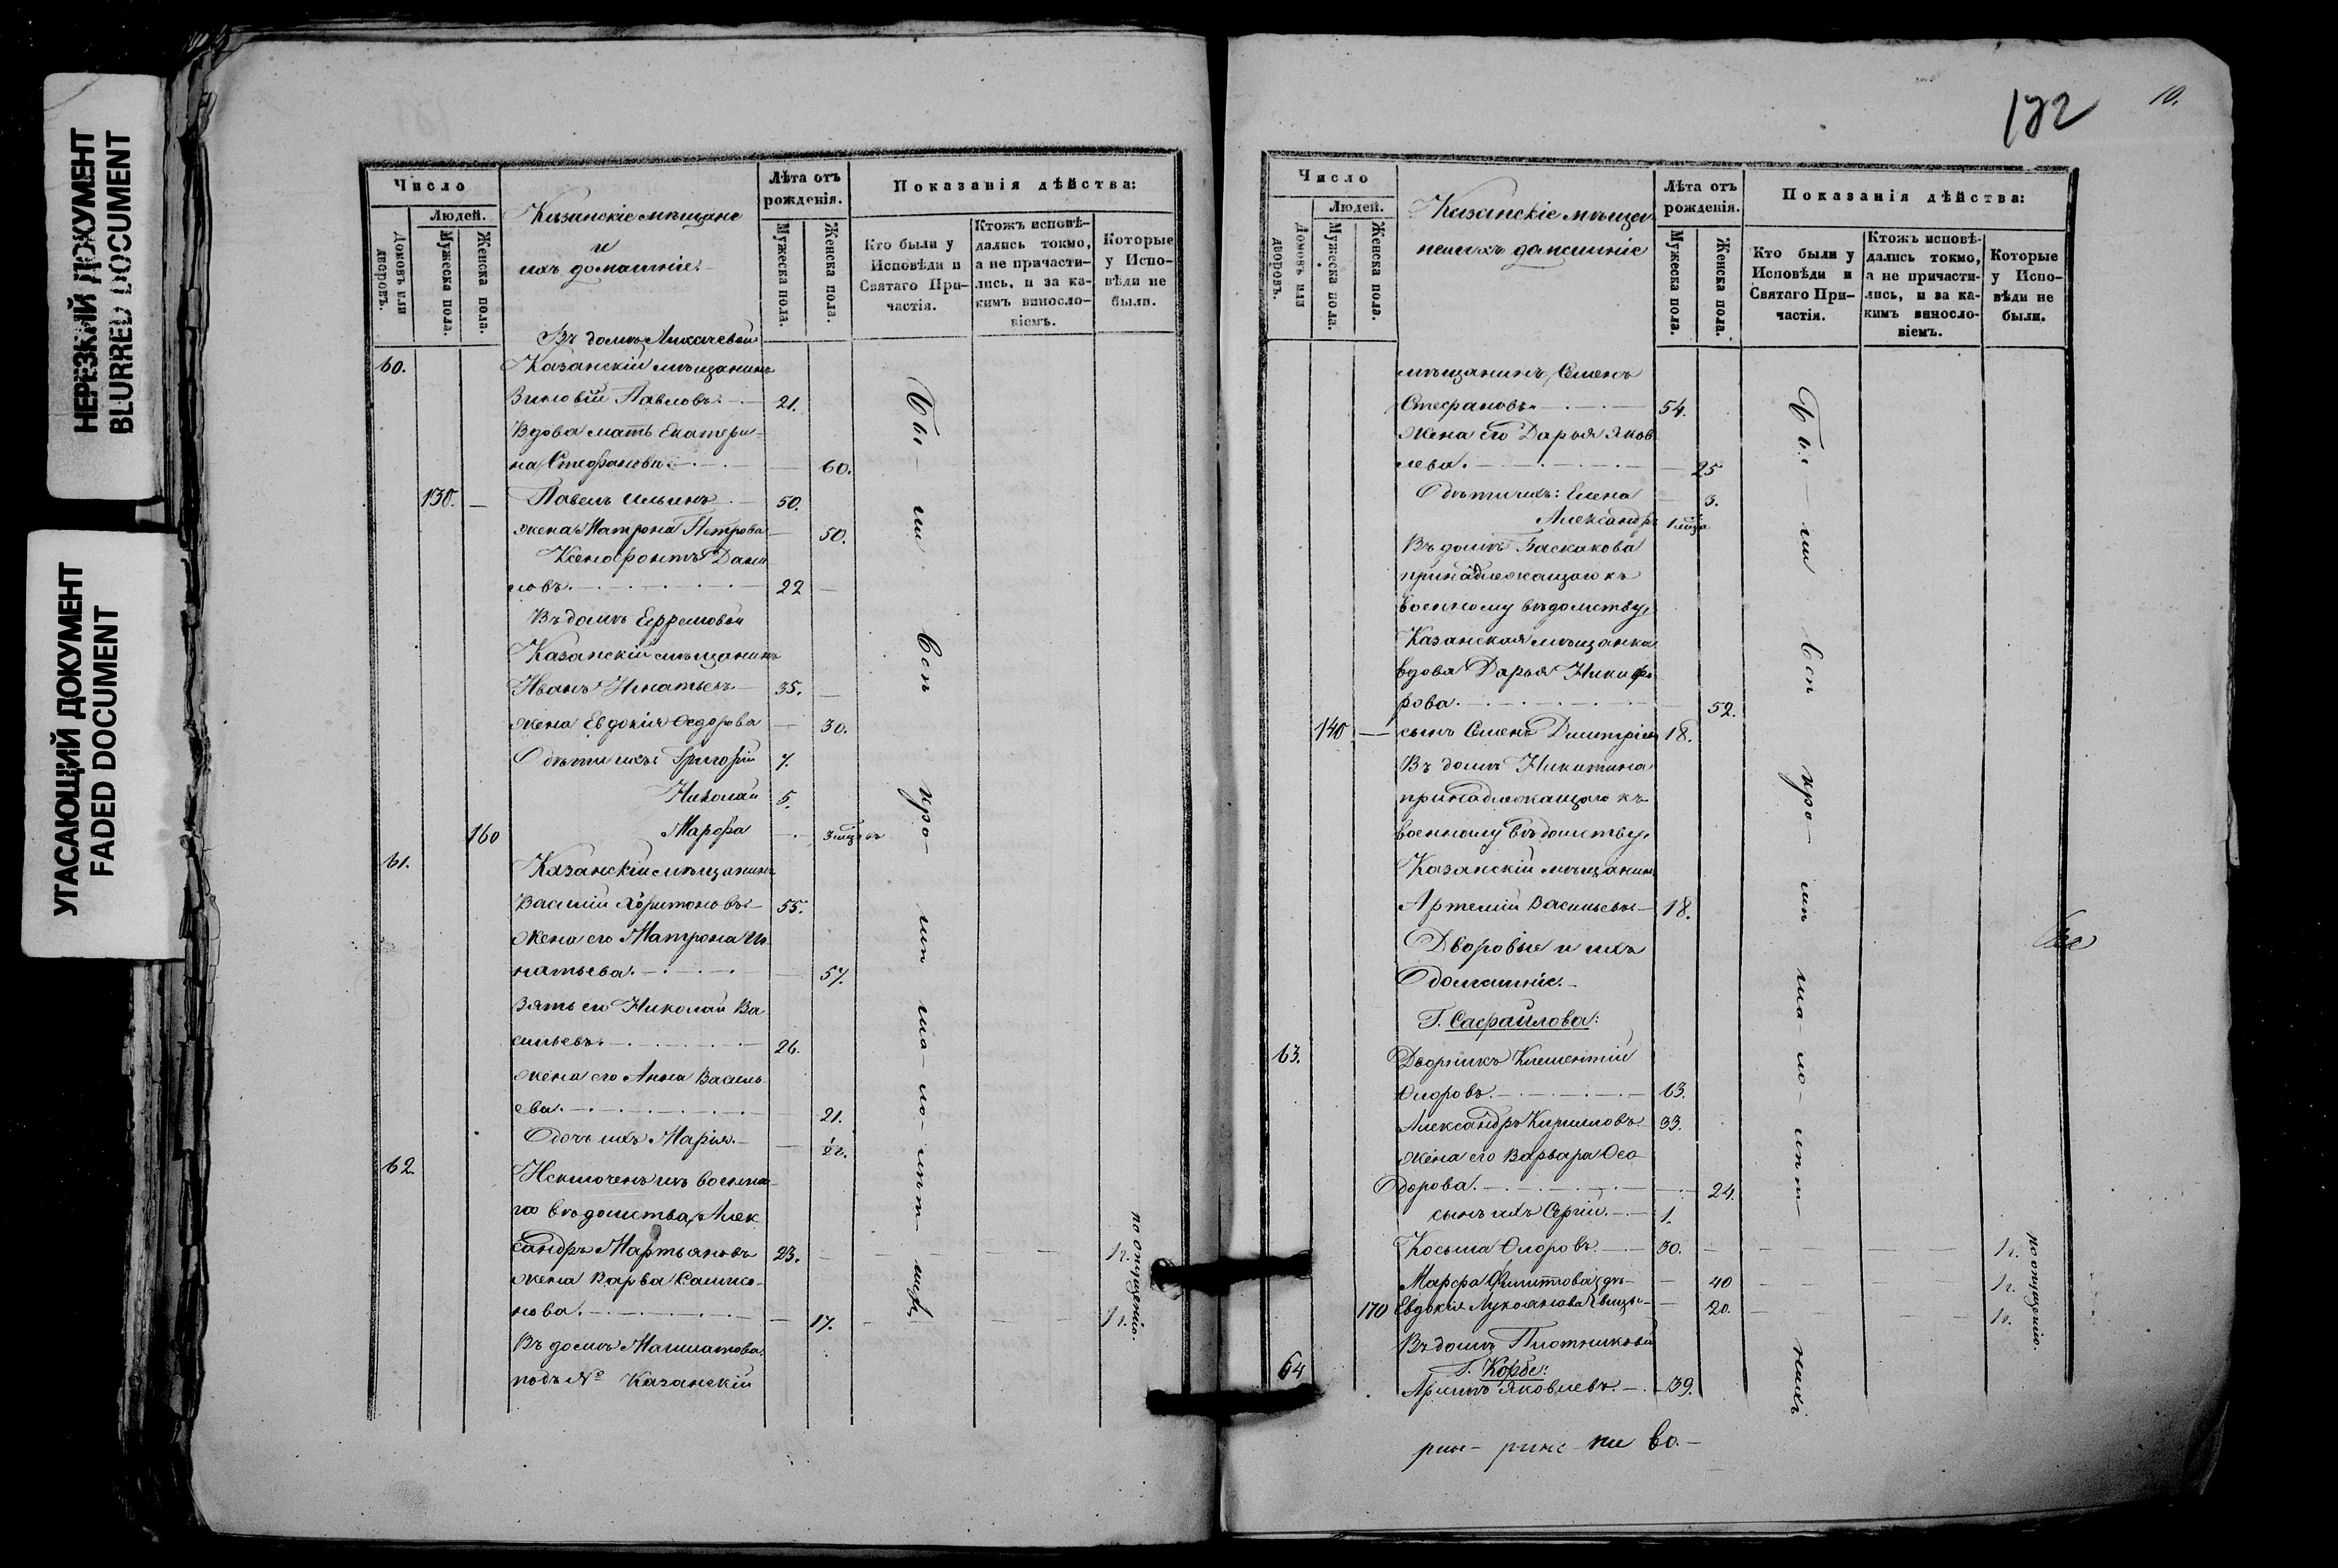 НЕРЕЗКИЙ ДОКУМЕНТ
BLURRED DOCUMENT
УГАСАЮЩИЙ ДОКУМЕНТ
FADED DOCUMENT
Число
Людей.
Домовъ или дворовъ.
Мужеска пола.
Женска пола.
Казанскіе мѣщане
и
ихъ домашніе.
Лѣта отъ рожденія.
Мужеска пола.
Женска пола.
Показанія дѣйства:
Кто были у Исповѣди и Святаго При-частія.
Ктожъ исповѣ-дались токмо, а не причасти-лись, и за ка-кимъ винословіемъ.
Которые у Испо-вѣди не были.
Въ домѣ Лихачевой
60. Казанскій мѣщанинъ
Зиновій Павловъ. 21.
Вдова мать Екатери-
на Стефанова. 60.
130. Павелъ Ильинъ 50.
жена Матрона Петрова 50.
Ксенофонтъ Дани
ловъ. 22
Въ домѣ Ефремовой
Казанскій мѣщанинъ
Иванъ Игнатьевъ 35.
жена Евдокія Ѳедорова 30.
Дѣти ихъ: Григорій 7.
Николай 5.
160 Марѳа
61. Казанскій мѣщанинъ
Василій Харитоновъ 55.
Жена его Матрона Иг
натьева. 57.
Зять его Николай Ва
сильевъ. 26.
жена его Анна Василь
ева. 21.
Дочь ихъ Марія.
62. Исключенъ изъ военна-
го вѣдомства, Алек
сандръ Мартьяновъ 23. 1г.
жена Варва Самсо-
нова. 17. 1г.
по опущенію.
Въ домѣ
подъ № Казанскій
172
10.
Число
Людей.
Домовъ или дворовъ.
Мужеска пола.
Женска пола.
Казанскіе мѣща
не и ихъ домашніе
Лѣта отъ рожденія.
Мужеска пола.
Женска пола.
Показанія дѣйства:
Кто были у Исповѣди и Святаго При-частія.
Ктожъ исповѣ-дались токмо, а не причасти-лись, и за ка-кимъ винословіемъ.
Которые у Испо-вѣди не были.
мѣщанинъ, Семенъ
Стефановъ. 54.
жена его Дарья Яков
лева. 25
Дѣти ихъ: Елена 3.
Александръ
Въ домѣ Баскакова
принадлежащаго къ
военному вѣдомству,
Казанская мѣщанка
вдова Дарья Никифо
рова. 52.
140 сынъ Семенъ Димитріевъ 18.
Въ домѣ Никитина
принадлежащаго къ
военному вѣдомству,
Казанскій мѣщанинъ
Артемій Васильевъ 18.
Дворовые и ихъ
домашніе.
Г.
63. Дворникъ Климентій
Ѳлоровъ. 63.
Александръ Кирилловъ 33.
жена его Варвара Ѳео
дорова. 24.
сынъ ихъ Сергій. 1.
Косьма Ѳлоровъ 30. 1г.
Марѳа дѣ- 40 1г.
170 Евдокія Лукоянова вицы 20. 1г.
по опущенію.
Въ домѣ Плотниковой
64 Г. Корбе:
Яковлевъ. 39.